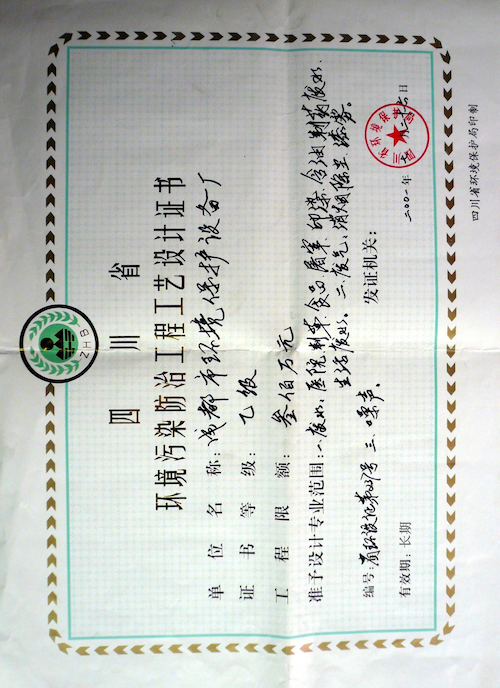 ZHB
四川省
环境污染防治工程工艺设计证书
单位名称：成都市环境保护设备厂
证书等级：乙级
工程限额：叁佰万元
准予设计专业范围：一.废水：医院.制革.食品.屠宰.印染.含油.制药废水.
生活废水。二.废气：消烟除尘.漆雾。
三.噪声。
编号：
发证机关：
有效期：长期
二〇〇一年
日
四川省环境保护局印制